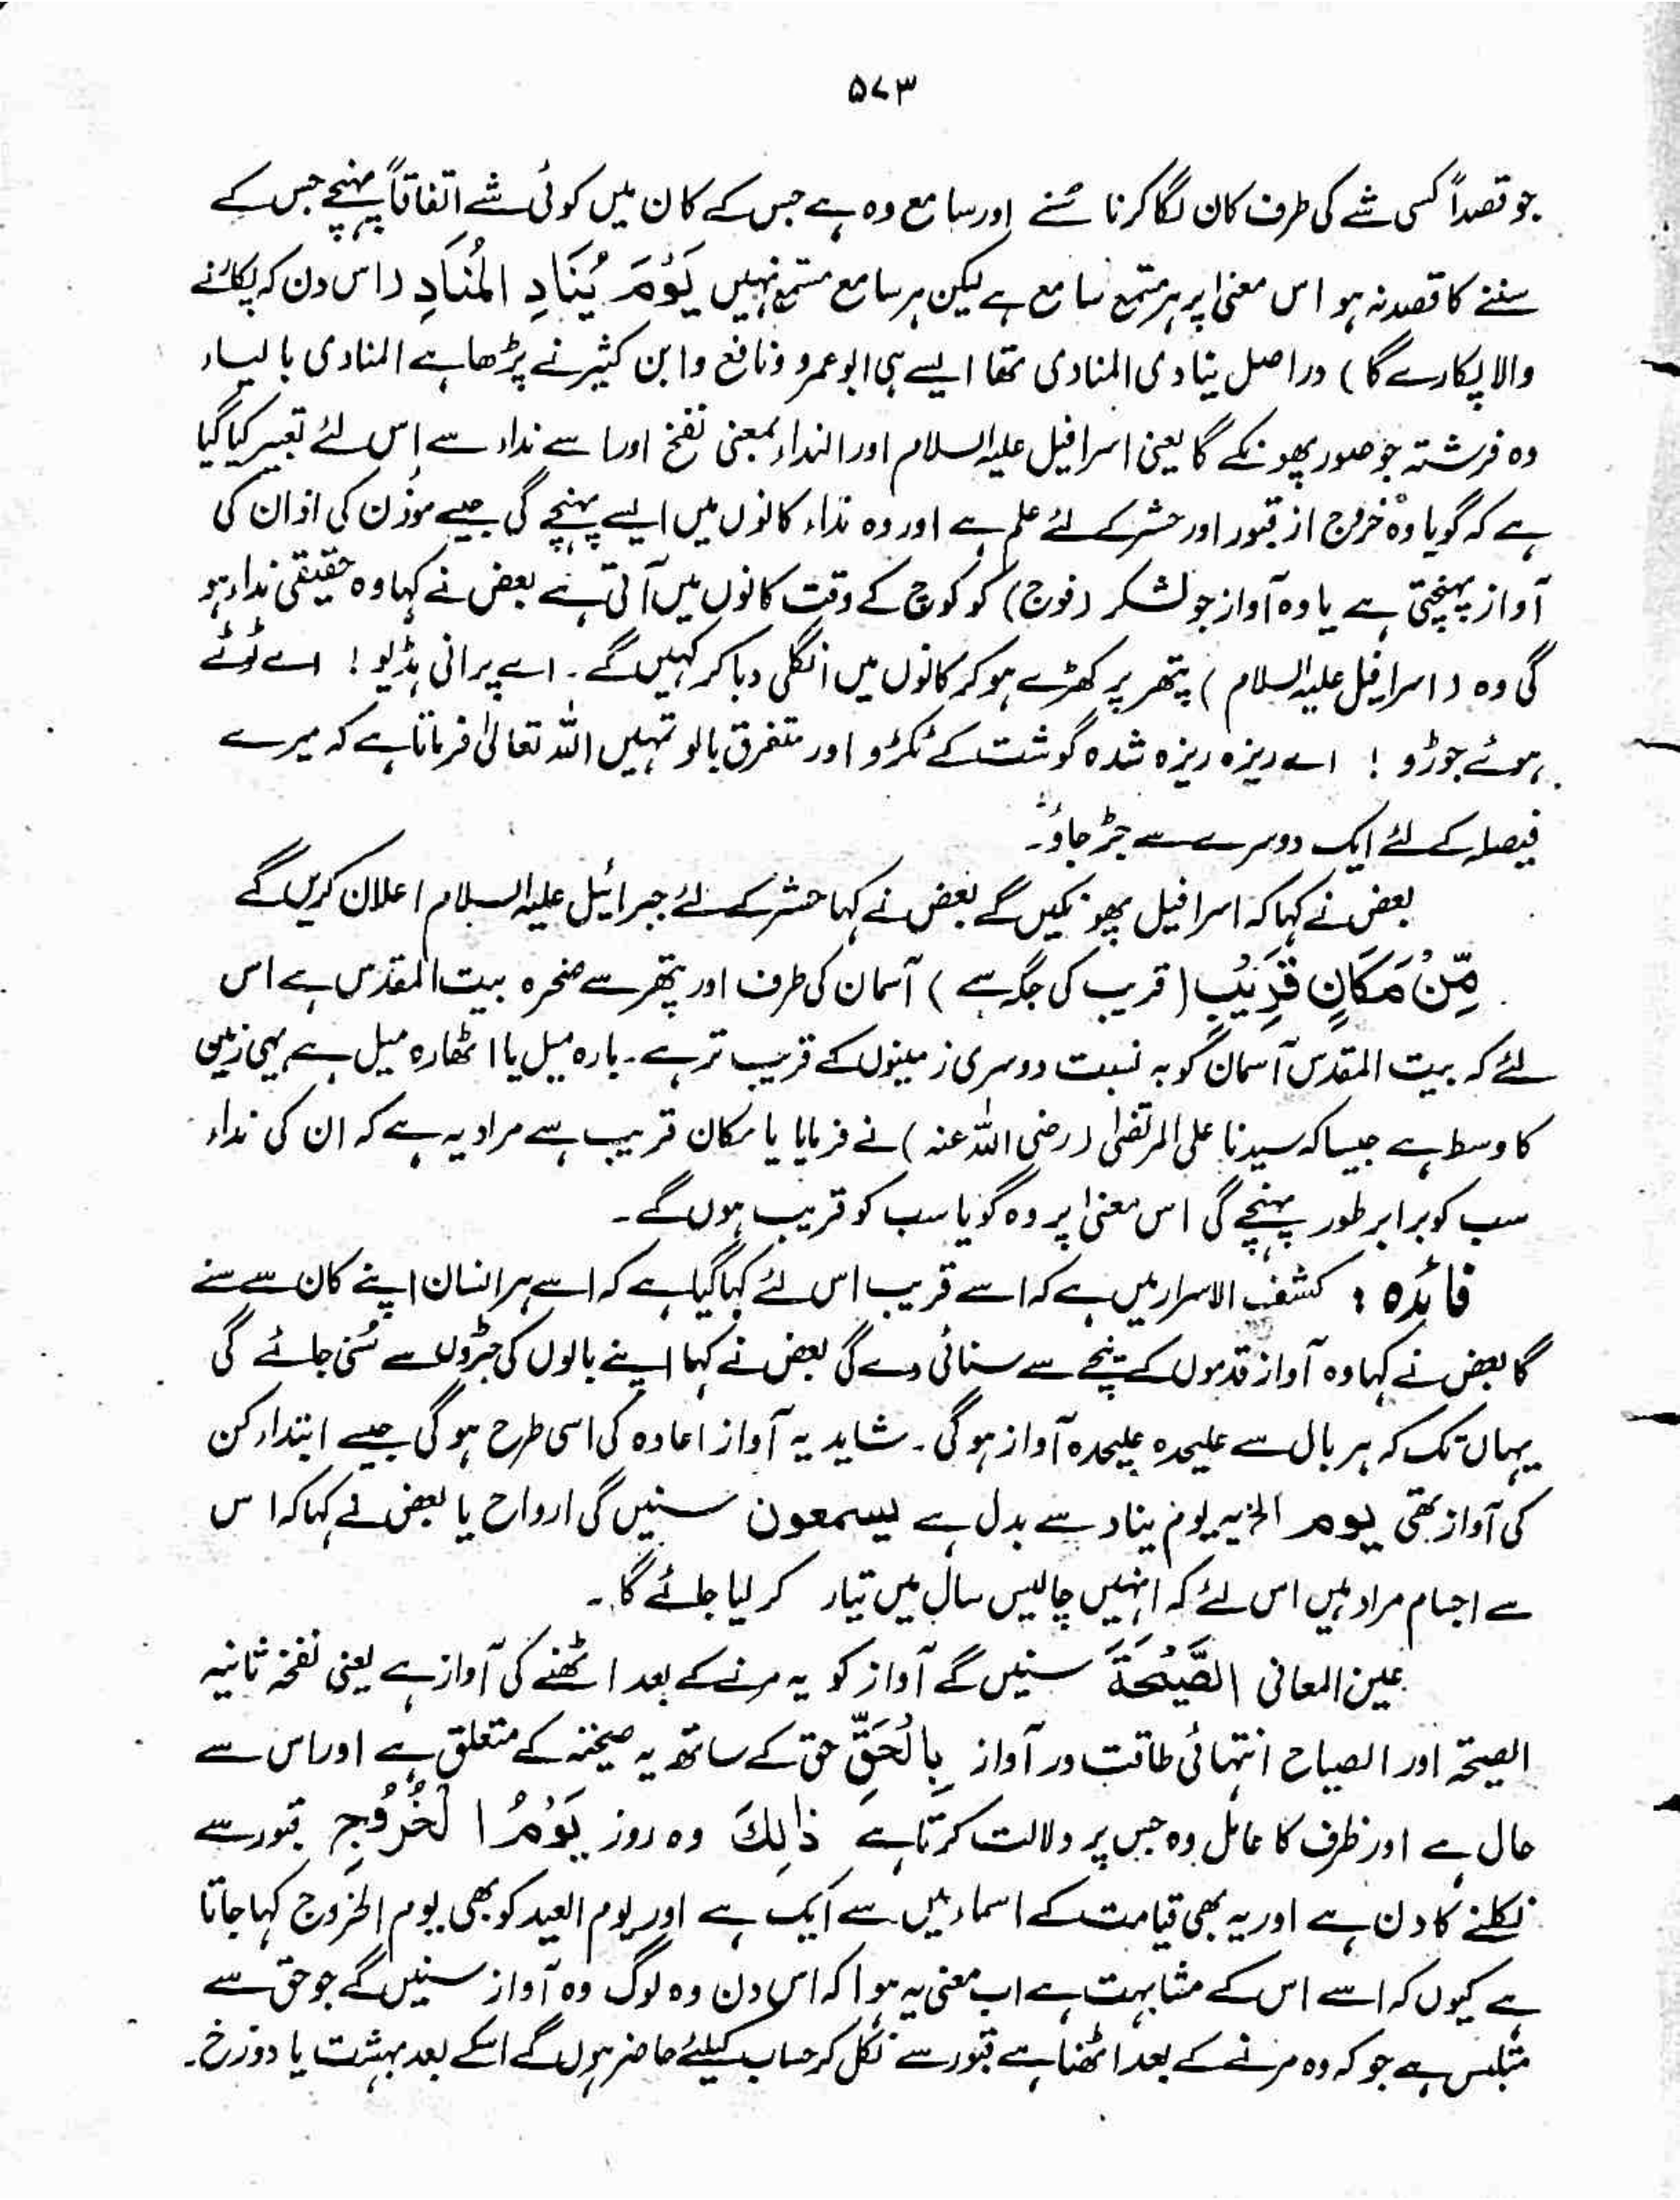 ۵۷۳
جو قصداً کسی شے کی طرف کان لگا کرنا سُنے اور سامع وہ ہے جس کے کان میں کوئی شے اتفاقاً پہنچے جس کے
سننے کا قصد نہ ہو اس معنیٰ پر ہر مستمع سامع ہے لیکن ہر سامع مستمع نہیں یَوْمَ یُنَادِ الْمُنَادِ (اس دن کہ پکارنے
والا پکارے گا) دراصل ینادی المنادی تھا ایسے ہی ابوعمرو و نافع و ابن کثیر نے پڑھا ہے المنادی بالیاء
وہ فرشتہ جو صور پھونکے گا یعنی اسرافیل علیہ السلام اور النداء بمعنی نفخ اور اسے نداء سے اس لئے تعبیر کیا گیا
ہے کہ گویا وہ خروج از قبور اور حشر کے لئے علم ہے اور وہ نداء کانوں میں ایسے پہنچے گی جیسے موذن کی اذان کی
آواز پہنچتی ہے یا وہ آواز جو لشکر (فوج) کو کوچ کے وقت کانوں میں آتی ہے بعض نے کہا وہ حقیقی نداء ہو
گی وہ (اسرافیل علیہ السلام) پتھر پر کھڑے ہو کر کانوں میں انگلی دبا کر کہیں گے۔ اے پرانی ہڈیو! اے ٹوٹے
ہوئے جوڑو! اے ریزہ ریزہ شدہ گوشت کے ٹکڑو اور متفرق بالو تمہیں اللہ تعالیٰ فرماتا ہے کہ میرے
فیصلہ کے لئے ایک دوسرے سے جڑ جاؤ۔
بعض نے کہا کہ اسرافیل پھونکیں گے بعض نے کہا حشر کے لئے جبرائیل علیہ السلام اعلان کریں گے
مِّنْ مَکَانٍ قَرِیْبٍ (قریب کی جگہ سے) آسمان کی طرف اور پتھر سے صخرہ بیت المقدس ہے اس
لئے کہ بیت المقدس آسمان کو بہ نسبت دوسری زمینوں کے قریب تر ہے۔ بارہ میل یا اٹھارہ میل ہے یہی زمین
کا وسط ہے جیسا کہ سیدنا علی المرتضیٰ (رضی اللہ عنہ) نے فرمایا یا مکان قریب سے مراد یہ ہے کہ ان کی نداء
سب کو برابر طور پہنچے گی اس معنیٰ پر وہ گویا سب کو قریب ہوں گے۔
فائدہ: کشف الاسرار میں ہے کہ اسے قریب اس لئے کہا گیا ہے کہ اسے ہر انسان اپنے کان سے سنے
گا بعض نے کہا وہ آواز قدموں کے نیچے سے سنائی دے گی بعض نے کہا اپنے بالوں کی جڑوں سے سُنی جائے گی
یہاں تک کہ ہر بال سے علیحدہ علیحدہ آواز ہوگی۔ شاید یہ آواز اعادہ کی اسی طرح ہوگی جیسے ابتداء کن
کی آواز تھی یوم الخ یہ یوم یناد سے بدل ہے یسمعون سنیں گی ارواح یا بعض نے کہا کہ اس
سے اجسام مراد ہیں اس لئے کہ انہیں چالیس سال میں تیار کر لیا جائے گا۔
عین المعانی الصَّیْحَۃَ سنیں گے آواز کو یہ مرنے کے بعد اٹھنے کی آواز ہے یعنی نفخۂ ثانیہ
الصیحۃ اور الصیاح انتہائی طاقت ور آواز بِالْحَقِّ حق کے ساتھ یہ صیحۃ کے متعلق ہے اور اس سے
حال ہے اور ظرف کا عامل وہ جس پر دلالت کرتا ہے ذٰلِکَ وہ روز یَوْمُ الْخُرُوْجِ قبور سے
نکلنے کا دن ہے اور یہ بھی قیامت کے اسماء میں سے ایک ہے اور یوم العید کو بھی یوم الخروج کہا جاتا
ہے کیوں کہ اسے اس کے مشابہت ہے اب معنی یہ ہوا کہ اس دن وہ لوگ وہ آواز سنیں گے جو حق سے
متلبس ہے جو کہ وہ مرنے کے بعد اٹھنا ہے قبور سے نکل کر حساب کیلئے حاضر ہوں گے اسکے بعد بہشت یا دوزخ۔